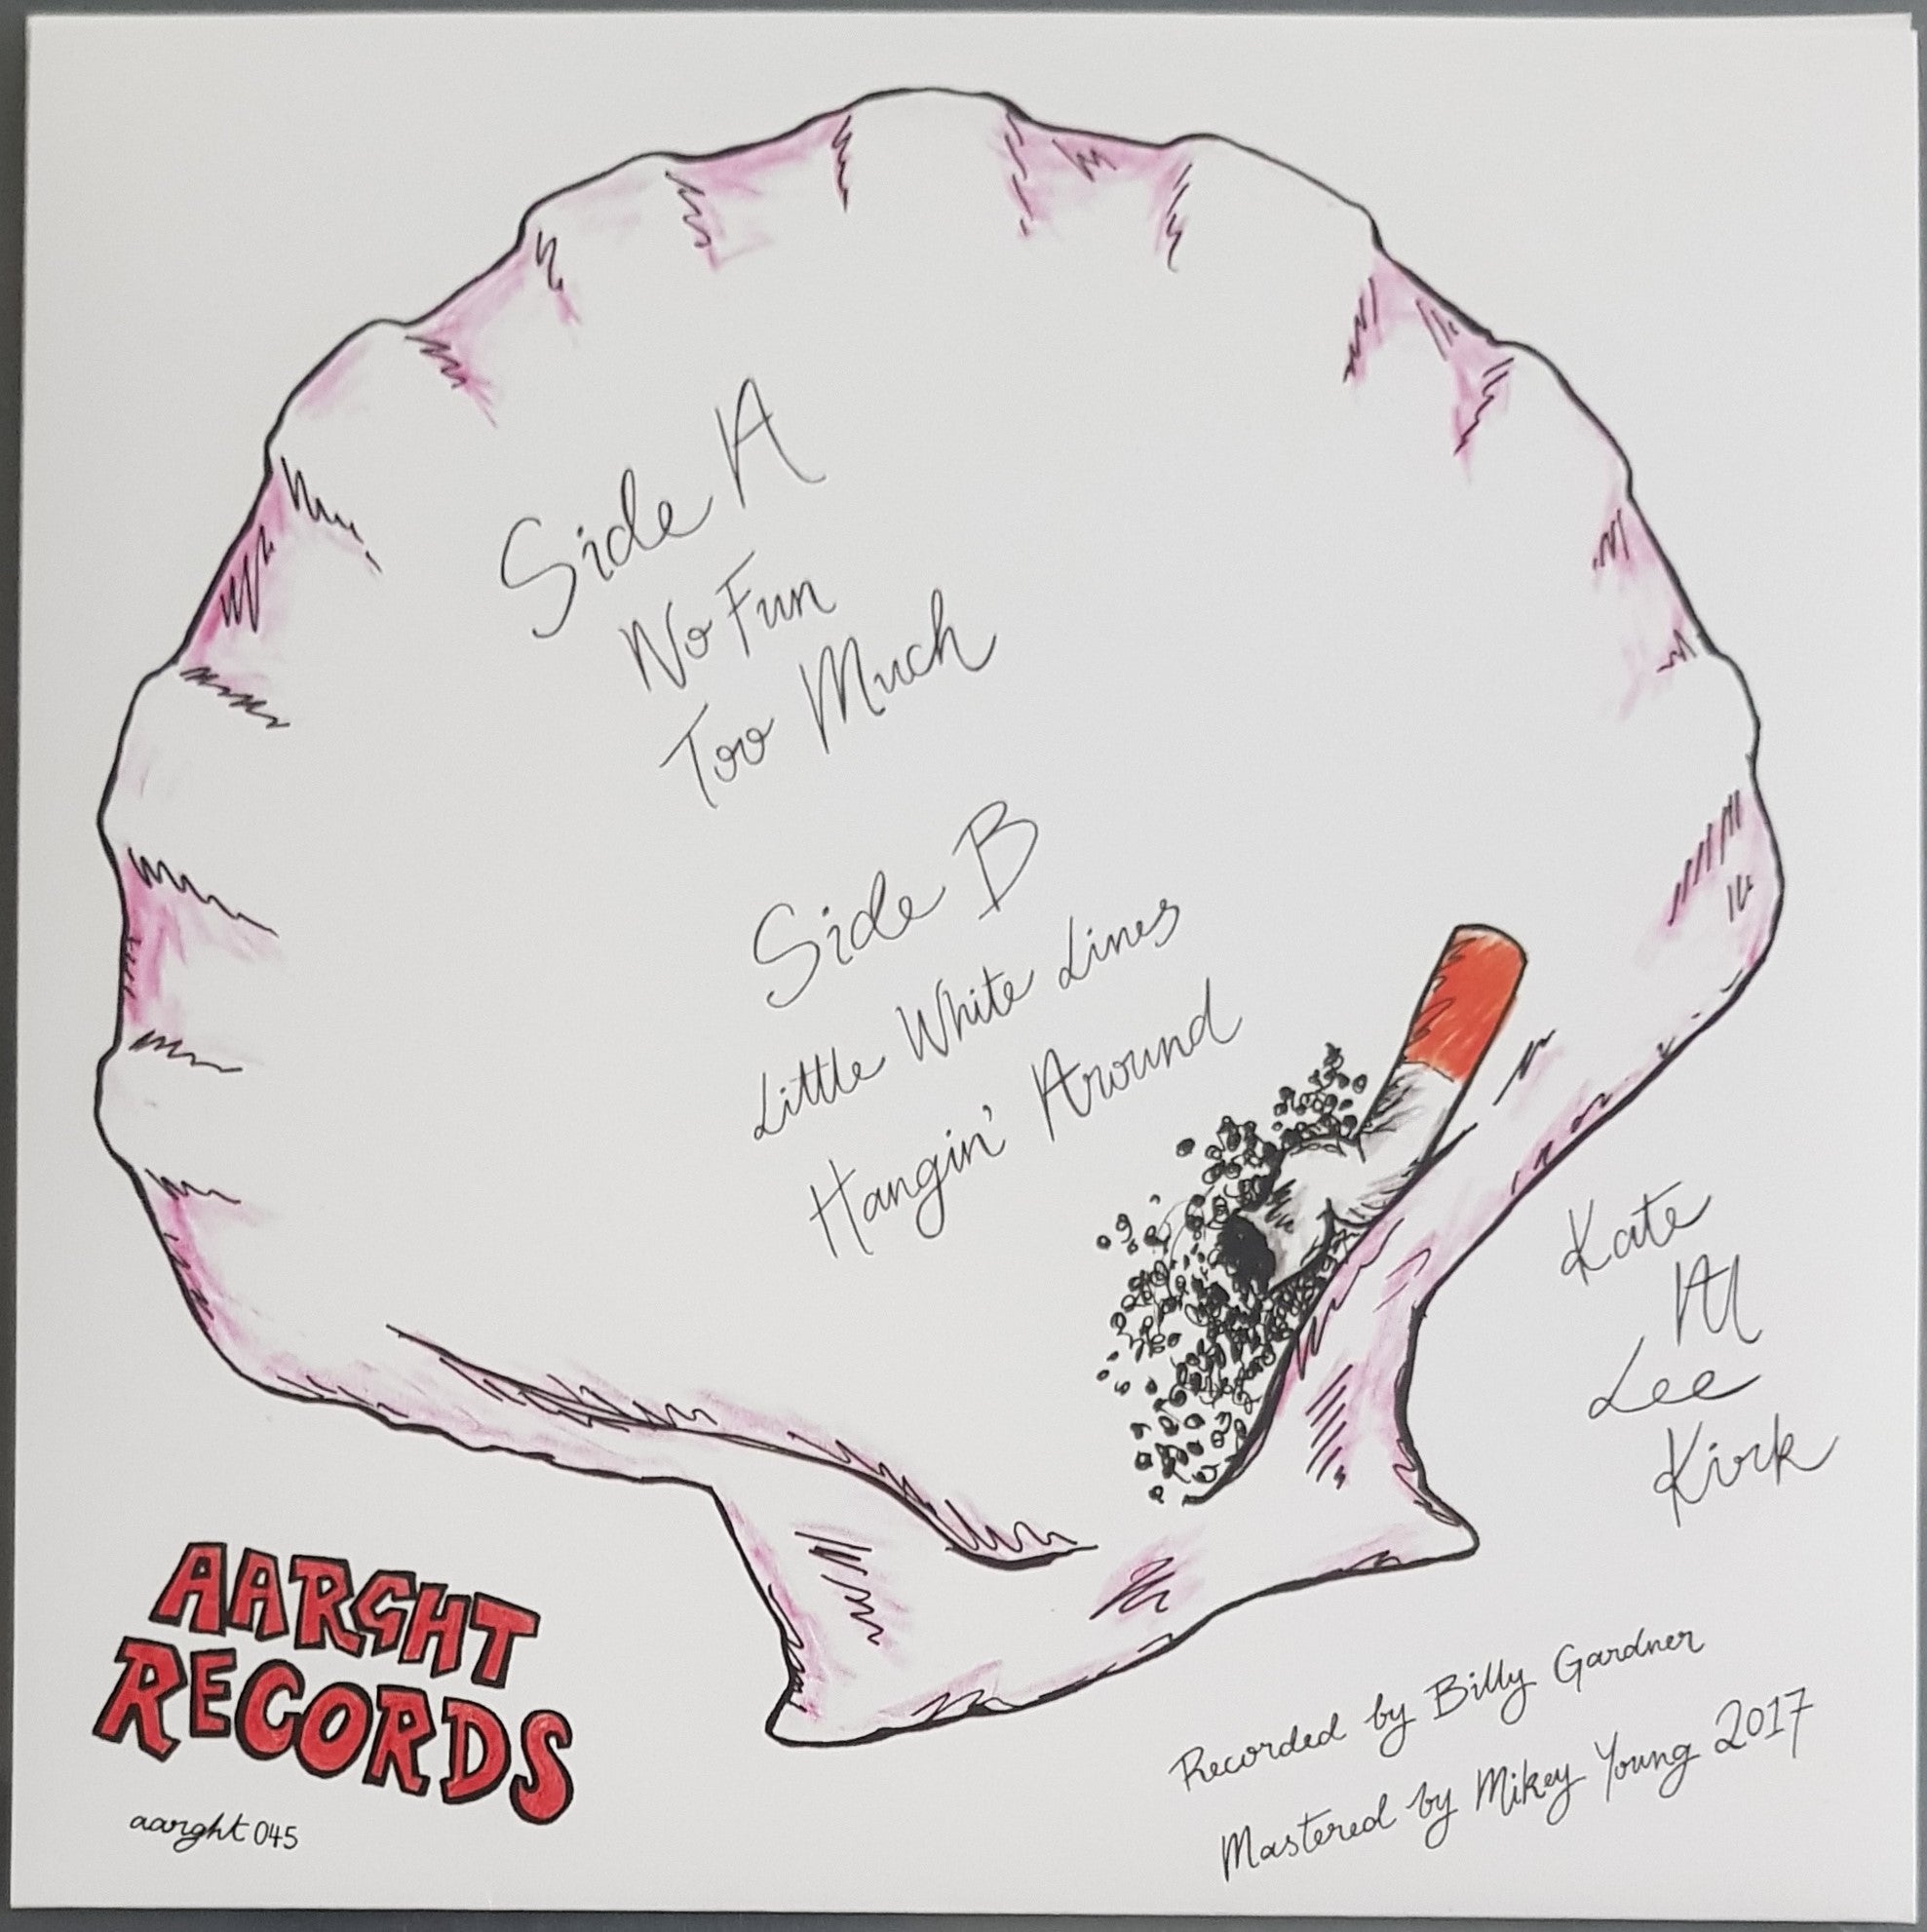 Side A
No Fun
Too Much
Side B
Little White Lines
Hangin' Around
Kate
Al
Lee
Kirk
AARGHT
RECORDS
aarght 045
Recorded by Billy Gardner
Mastered by Mikey Young 2017